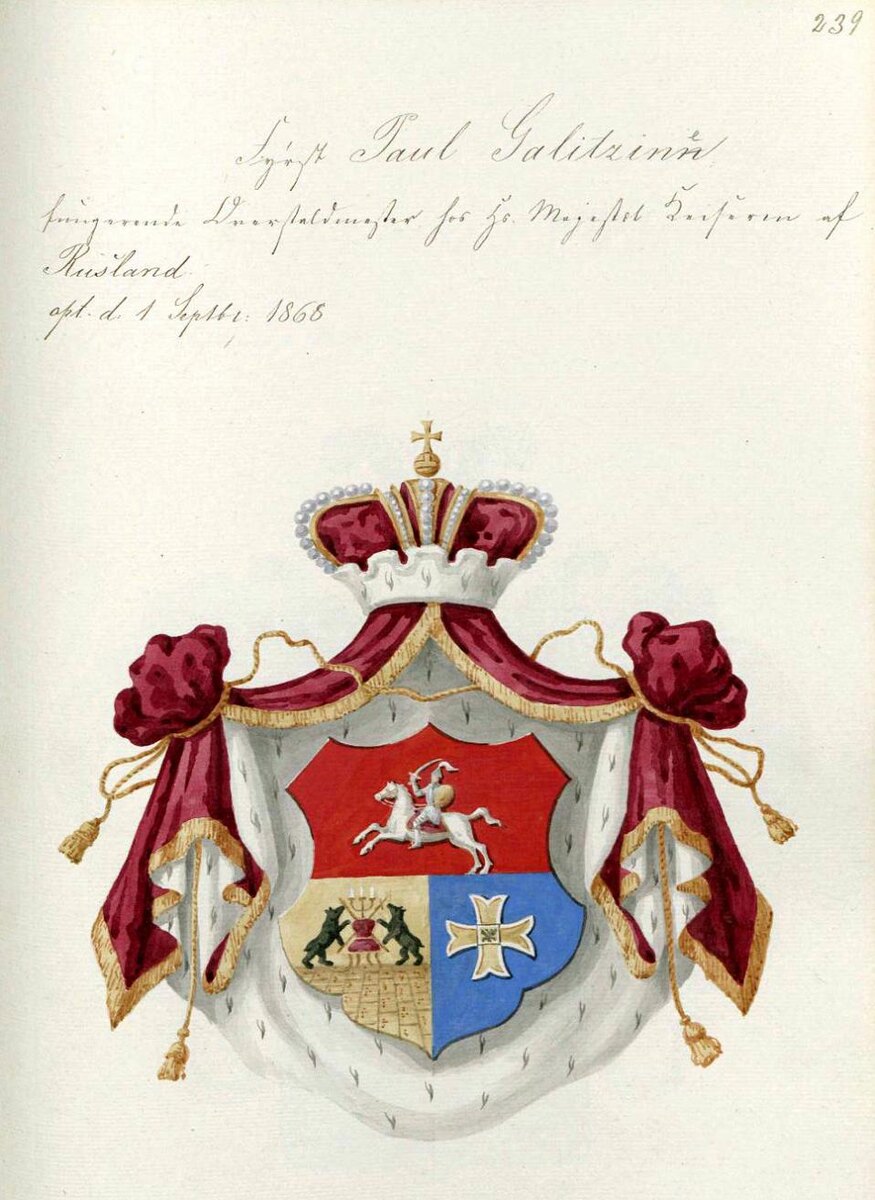 239
Fyrst Paul Galitzine
fungerende Overstaldmester hos Hs. Majestæt Keiseren af
Rusland
opt. d. 1 Septbr: 1868